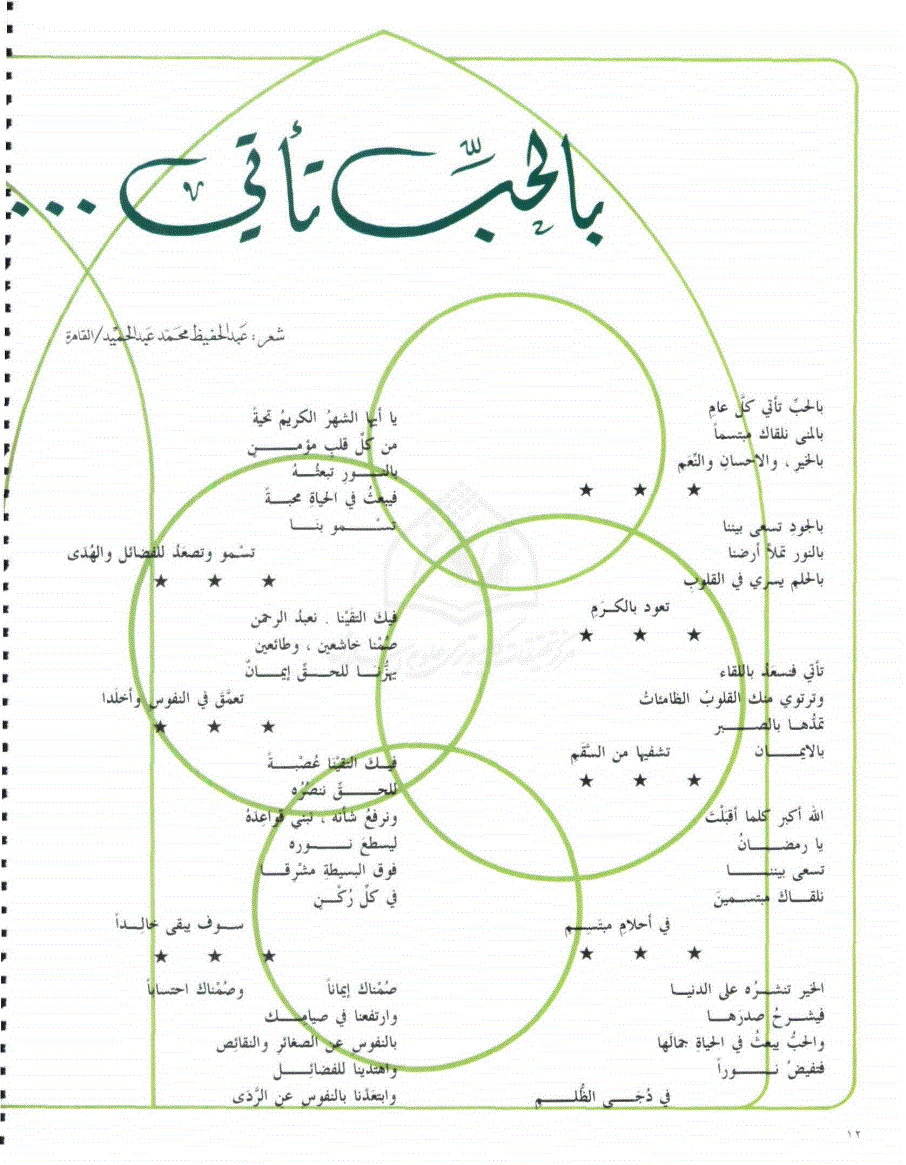 بالحبِّ تأتي ...
شعر : عَبدالحفيظ محمَد عَبدالحميْد/القاهرة
بالحبِّ تأتي كلَّ عامِ
بالمنى نلقاك مبتسماً
بالخير ، والاحسانِ والنِّعَمِ
★ ★ ★
بالجودِ تسعى بيننا
بالنور تملأ أرضنا
بالحلم يسري في القلوبِ
تعود بالكرَمِ
★ ★ ★
تأتي فنسعَدُ باللقاء
وترتوي منك القلوبُ الظامئاتُ
تمدُّهـا بالصـــبر
بالايمـــان
تشفيها من السَّقَمِ
★ ★ ★
الله أكبر كلما أقبَلْتَ
يا رمضـــانُ
تسعى بيننـــا
نلقـــاك مبتســمينَ
في أحلامِ مبتَسِــمِ
★ ★ ★
الخير تنشــرُه على الدنيـــا
فيشــرحُ صدرَهـــا
والحبُّ يبعثُ في الحياةِ جمالَها
فتفيضُ نـــوراً
في دُجَــى الظُّلــمِ
يا أيها الشهرُ الكريمُ تحيةً
من كلِّ قلبٍ مؤمـــنٍ
بالنـــور تبعثُـــهُ
فيبعثُ في الحياةِ محبـــةً
تسْـــمو بنَـــا
تسْمو وتصعَدُ للفضائل والهُدَى
★ ★ ★
فيكَ التقَيْنا . نعبدُ الرحمن
صُمْنا خاشعين ، وطائعين
يهزُّنـــا للحـــقِّ إيمـــانٌ
تعمَّقَ في النفوسِ وأخلَدا
★ ★ ★
فيــكَ التقيْنا عُصْبـــةً
للحـــقِّ ننصُرُه
ونرفعُ شأنَه ، نبني قواعِدَهُ
ليسطعَ نـــوره
فوق البسيطةِ مشْرِقـــا
في كلِّ رُكْــنٍ
ســوف يبقى خالِــداً
★ ★ ★
صُمْناك إيماناً وصُمْناك احتساباً
وارتفعنا في صيامِــك
بالنفوس عن الصغائرِ والنقائِص
واهتدينا للفضائِـــل
وابتعَدْنا بالنفوسِ عن الرَّدَى
١٢